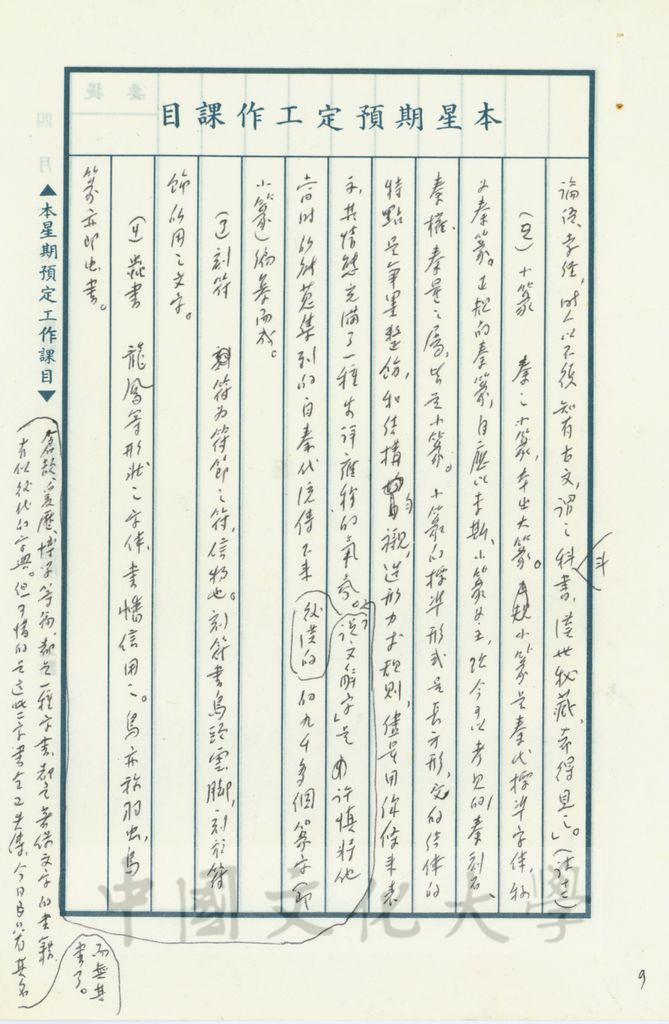 本星期預定工作課目
論語孝經，時人以不復知有古文，謂之科斗書，漢世秘藏，希得見之。」（註廿）
（2）小篆　秦之小篆，本出大篆。小篆是秦代標準字体，稱
為秦篆。正規的秦篆，自應以李斯小篆為主，故今可以考見的秦刻石、
秦權、秦量之屬，皆是小篆。小篆的標準形式是長方形，它的結体的
特點是筆畫整飭，和結構的勻襯，造形力求規則，儘量用線條來表
示，其情態充滿了一種安詳雍穆的氣氛。「說文解字」是由許慎將他
當時所能蒐集到的自秦代流傳下來後漢的的九千多個篆字（即
小篆）編纂而成。
（3）刻符　刻符為符節之符，信物也。刻符書鳥頭雲腳，刻於符
節所用之文字。
（4）蟲書　龍鳳等形狀之字体，書幡信用之。鳥亦稱羽虫，鳥
篆亦即虫書。
▲本星期預定工作課目▼
倉頡、爰歷、博學等篇，都是一種字書，都是兼保文字的書籍
有似後代的字典。但可惜的是這些字書全已失傳，今日只見其名
而無其
書了。
9
中國文化大學